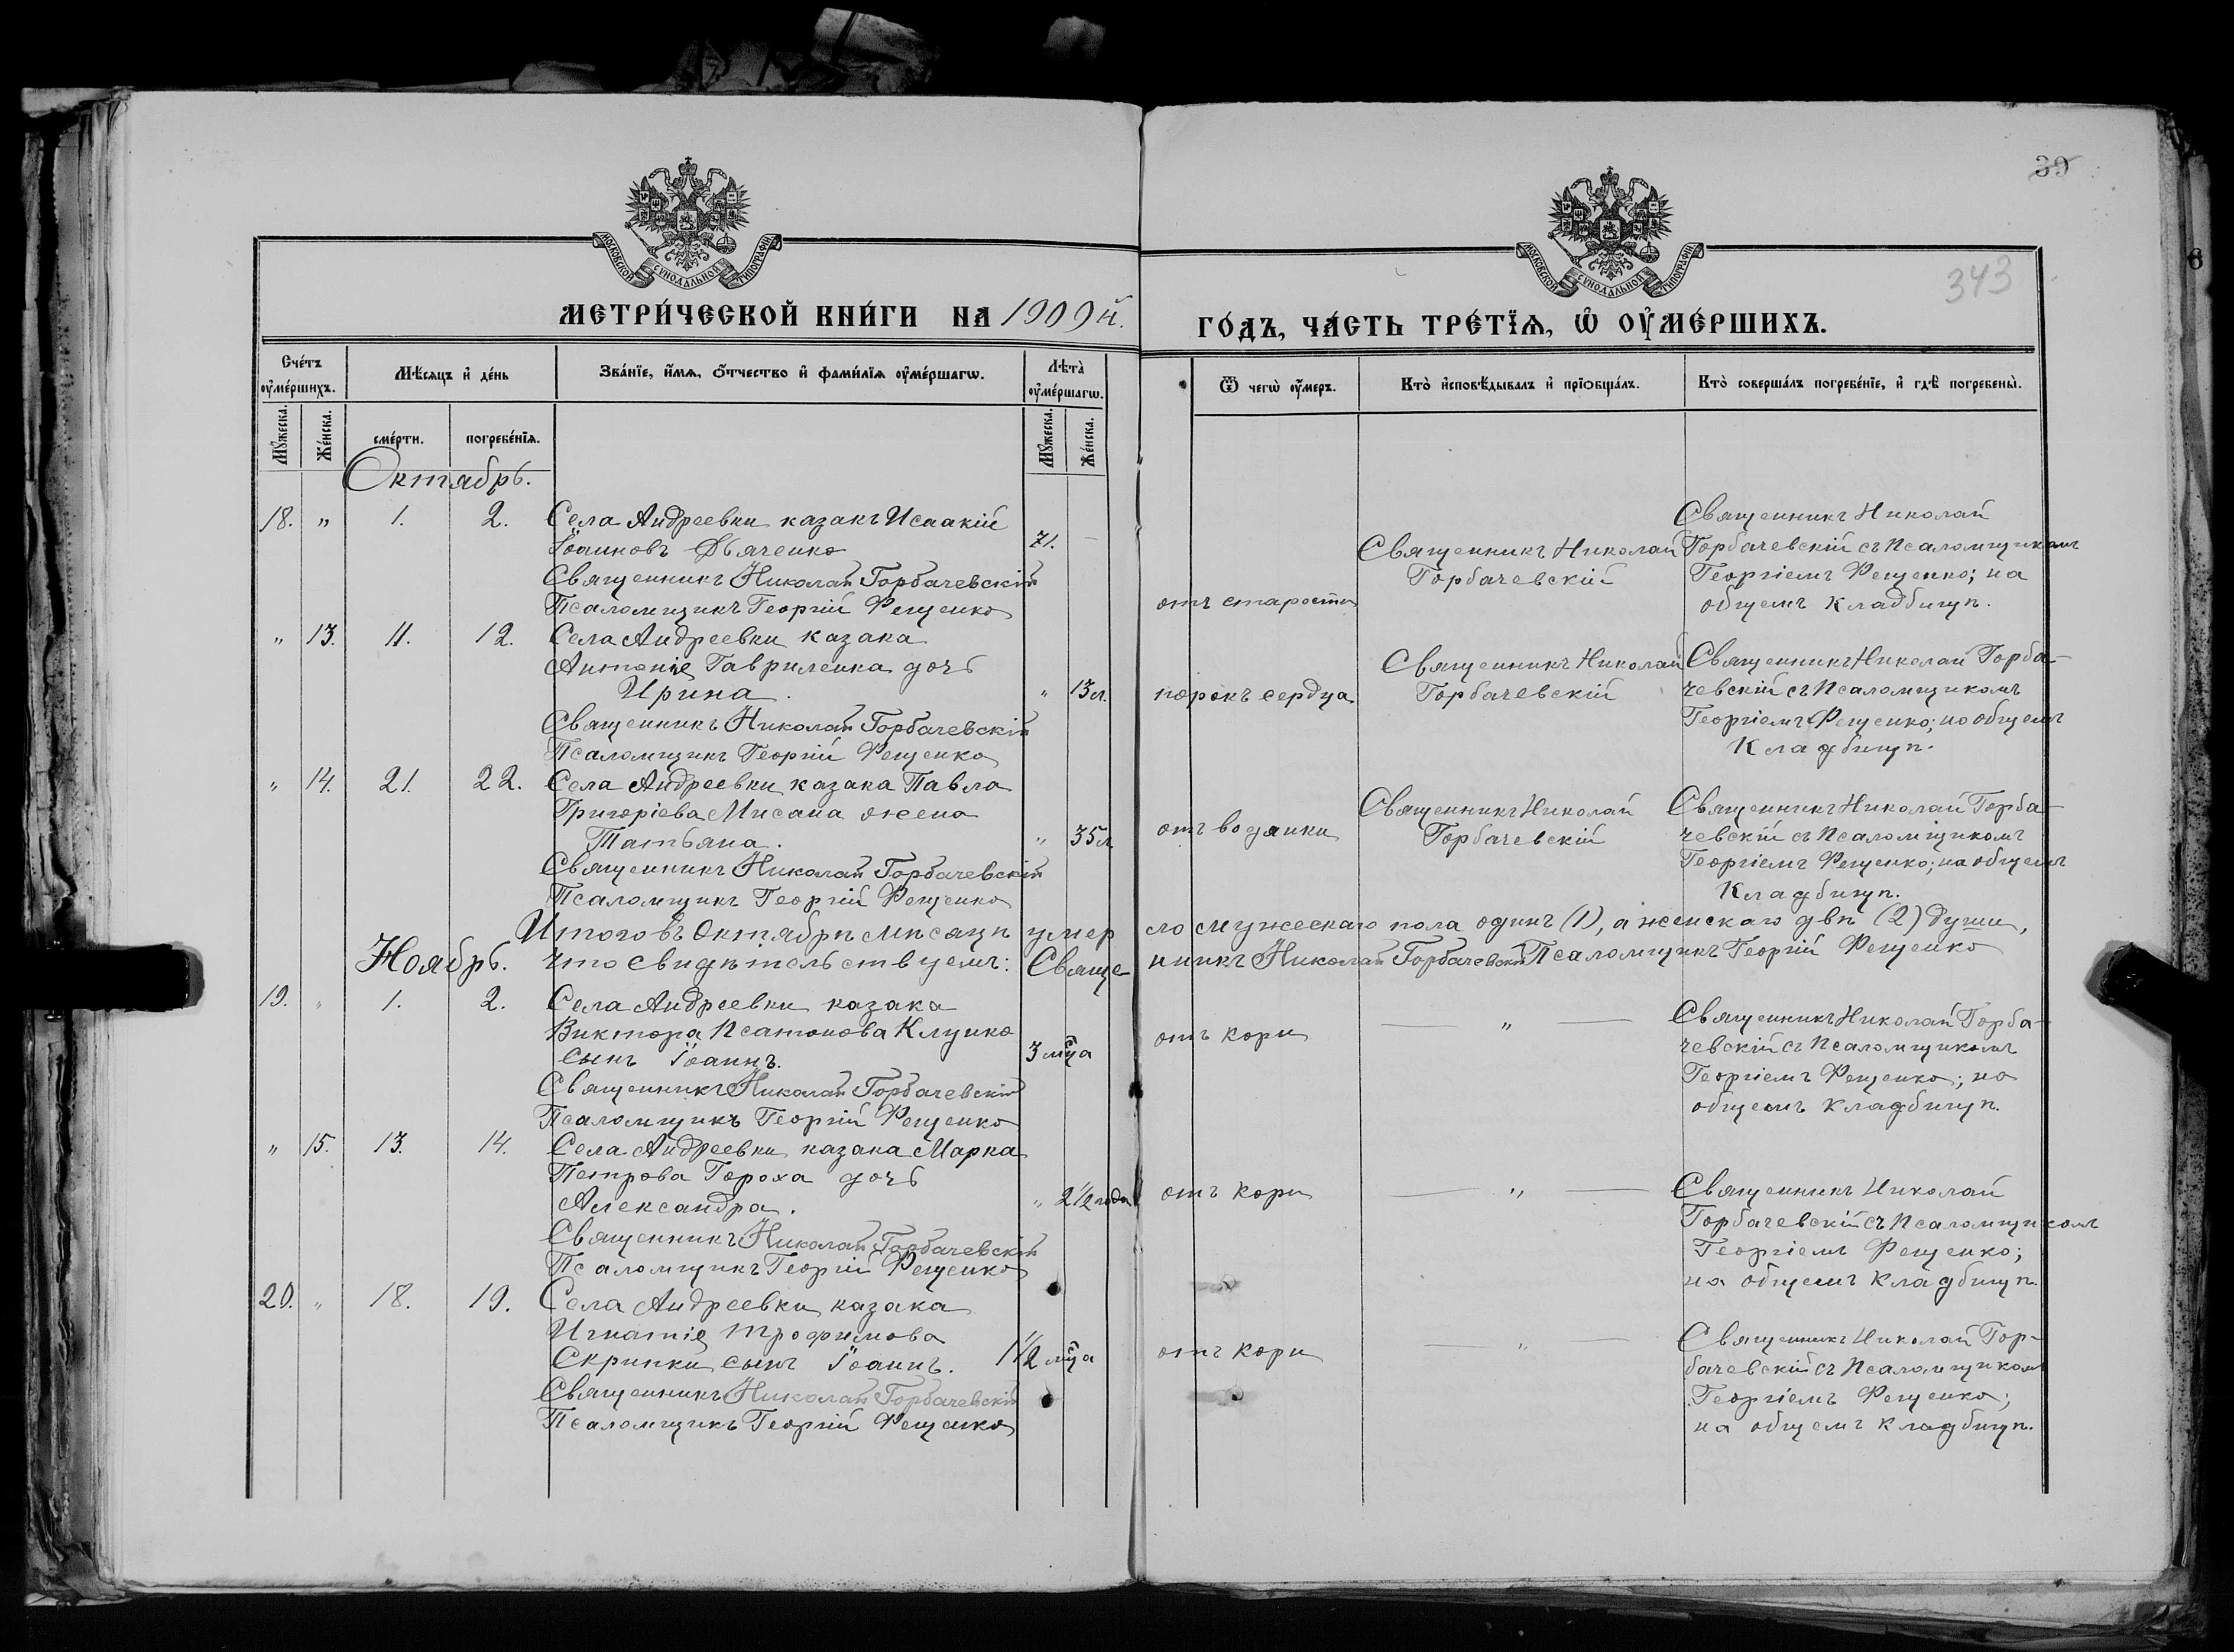 39
343
МОСКОВСКОЙ СѴНОДАЛЬНОЙ ТИПОГРАФІИ
МОСКОВСКОЙ СѴНОДАЛЬНОЙ ТИПОГРАФІИ
МЕТРИ́ЧЕСКОЙ КНИ́ГИ НА 1909й.
ГО́ДЪ, ЧА́СТЬ ТРЕ́ТЇѦ, Ѡ҆ ОУ҆МЕ́РШИХЪ.
Сче́тъ оу҆ме́ршихъ.
Мѣ́сяцъ и҆ де́нь
Зва́нїе, и҆́мѧ, ѻ҆́тчество и҆ фами́лїѧ оу҆ме́ршагѡ.
Лѣта̀ оу҆ме́ршагѡ.
Ѿ чегѡ̀ оу҆́меръ.
Кто̀ и҆сповѣ́дывалъ и҆ прїѡбща́лъ.
Кто̀ соверша́лъ погребе́нїе, и҆ гдѣ̀ погребены̀.
Мꙋ́жеска.
Же́нска.
сме́рти.
погребе́нїѧ.
Мꙋ́жеска.
Же́нска.
Октябрь.
18. " 1. 2. Села Андреевки казакъ Исаакій
Іоанновъ Дьяченко 71.
Священникъ Николай Горбачевскій
Псаломщикъ Георгій Рещенко
отъ старости
Священникъ Николай
Горбачевскій
Священникъ Николай
Горбачевскій съ Псаломщикомъ
Георгіемъ Рещенко; на
общемъ кладбищѣ.
" 13. 11. 12. Села Андреевки казака
Антонія Гавриленка дочь
Ирина. " 13 л.
Священникъ Николай Горбачевскій
Псаломщикъ Георгій Рещенко
порокъ сердца
Священникъ Николай
Горбачевскій
Священникъ Николай Горба-
чевскій съ Псаломщикомъ
Георгіемъ Рещенко; на общемъ
Кладбищѣ.
" 14. 21. 22. Села Андреевки казака Павла
Григоріева Мисана жена
Татьяна. " 35 л
Священникъ Николай Горбачевскій
Псаломщикъ Георгій Рещенко
отъ водянки
Священникъ Николай
Горбачевскій
Священникъ Николай Горба-
чевскій съ Псаломщикомъ
Георгіемъ Рещенко; на общемъ
Кладбищѣ.
Итого въ Октябрѣ мѣсяцѣ умерло мужескаго пола одинъ (1), а женскаго двѣ (2) души,
что свидѣтельствуемъ: Священникъ Николай Горбачевскій Псаломщикъ Георгій Рещенко
Ноябрь.
19. " 1. 2. Села Андреевки казака
Виктора Клунко
сынъ Іоаннъ. 3 мца
Священникъ Николай Горбачевскій
Псаломщикъ Георгій Рещенко
отъ кори
"
Священникъ Николай Горба-
чевскій съ Псаломщикомъ
Георгіемъ Рещенко; на
общемъ кладбищѣ.
" 15. 13. 14. Села Андреевки казака Марка
Петрова Гороха дочь
Александра. " 2 1/2 года
Священникъ Николай Горбачевскій
Псаломщикъ Георгій Рещенко
отъ кори
"
Священникъ Николай
Горбачевскій съ Псаломщикомъ
Георгіемъ Рещенко;
на общемъ кладбищѣ.
20. " 18. 19. Села Андреевки казака
Игнатія Трофимова
Скрипки сынъ Іоаннъ. 1 1/2 мца
Священникъ Николай Горбачевскій
Псаломщикъ Георгій Рещенко
отъ кори
"
Священникъ Николай Гор-
бачевскій съ Псаломщикомъ
Георгіемъ Рещенко;
на общемъ кладбищѣ.